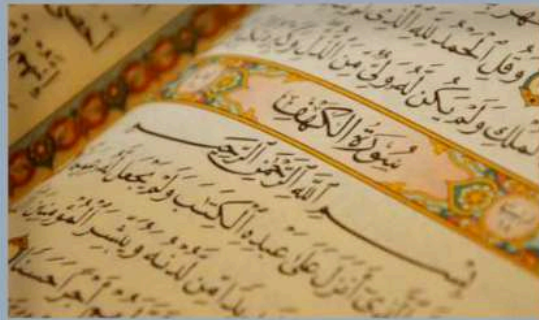 وَقُلِ ٱلْحَمْدُ لِلَّهِ ٱلَّذِى
ٱلْمُلْكِ وَلَمْ يَكُن لَّهُۥ وَلِىٌّ مِّنَ ٱلذُّلِّ
سُورَةُ الكَهْفِ
بِسْمِ ٱللَّهِ ٱلرَّحْمَٰنِ ٱلرَّحِيمِ
أَنزَلَ عَلَىٰ عَبْدِهِ ٱلْكِتَٰبَ وَلَمْ يَجْعَل لَّهُۥ
مِّن لَّدُنْهُ وَيُبَشِّرَ ٱلْمُؤْمِنِينَ
أَجْرًا حَسَنًا